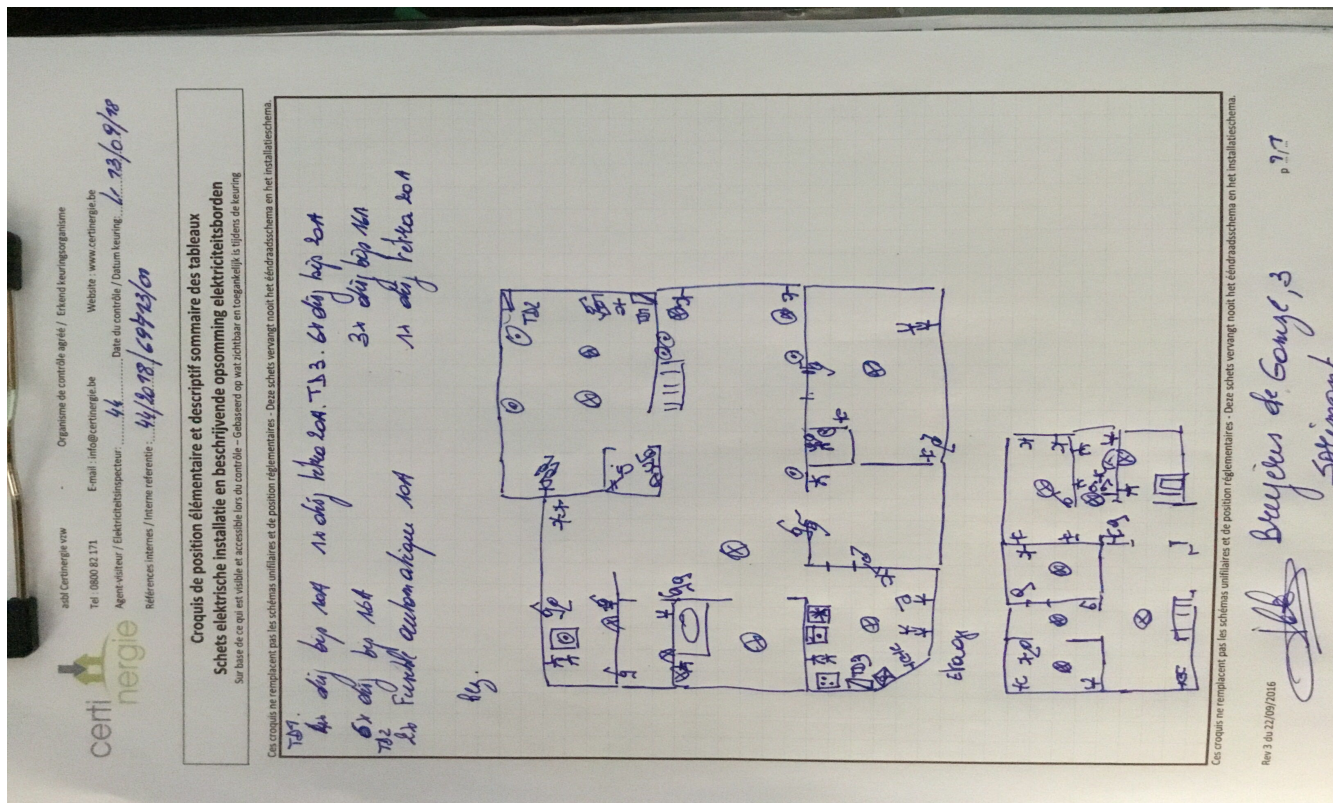 certi
nergie
asbl Certinergie vzw . Organisme de contrôle agréé / Erkend keuringsorganisme
Tel 0800 82 171 E-mail : info@certinergie.be Website : www.certinergie.be
Agent-visiteur / Elektriciteitsinspecteur: 44 Date du contrôle / Datum keuring: 13/09/18
Références internes / Interne referentie : 44/2018/
Croquis de position élémentaire et descriptif sommaire des tableaux
Schets elektrische installatie en beschrijvende opsomming elektriciteitsborden
Sur base de ce qui est visible et accessible lors du contrôle – Gebaseerd op wat zichtbaar en toegankelijk is tijdens de keuring
Ces croquis ne remplacent pas les schémas unifilaires et de position réglementaires - Deze schets vervangt nooit het ééndraadsschema en het installatieschema.
TD1.
4x dij bip 10A 1x dij tetra 20A. TD3. 6x dij bip 20A
6x dij bip 16A 3x dij bip 16A
TD2
2x Fusible automatique 10A 1x dij tetra 20A
Rez.
TD2
TD1
TD3
Etage
Ces croquis ne remplacent pas les schémas unifilaires et de position réglementaires - Deze schets vervangt nooit het ééndraadsschema en het installatieschema.
Rev 3 du 22/09/2016
Bruyères de Gonze, 3